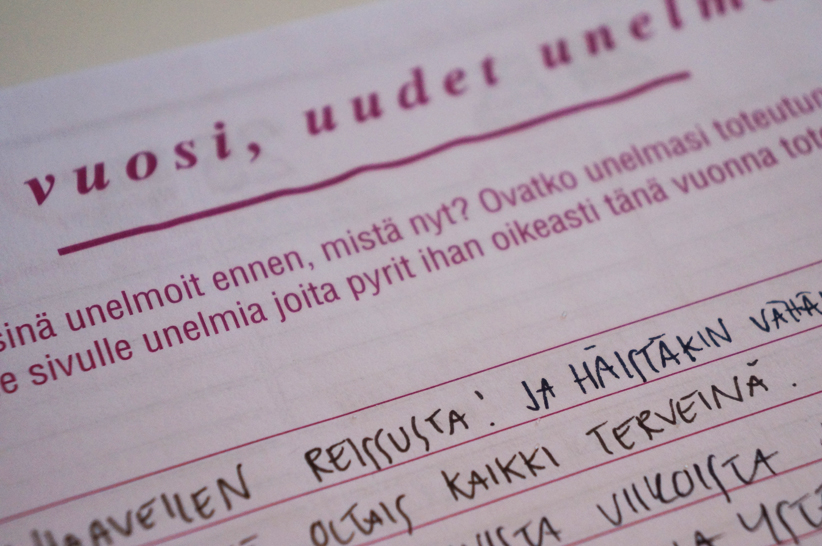 vuosi, uudet unelm
sinä unelmoit ennen, mistä nyt? Ovatko unelmasi toteutun
e sivulle unelmia joita pyrit ihan oikeasti tänä vuonna tote
HAAVEILEN REISSUSTA! JA HÄISTÄKIN VÄHÄ
OLTAIS KAIKKI TERVEINÄ.
VIIKOISTA
YSTÄ